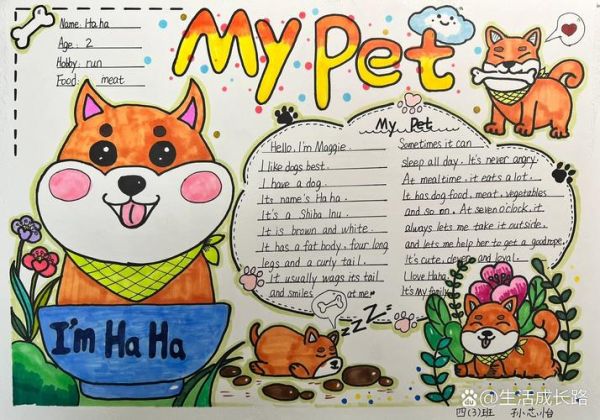 Name: Ha ha
Age: 2
Hobby: run
Food: meat
My Pet
My Pet
Hello, I'm Maggie.
I like dogs best.
I have a dog.
Its name's Ha ha.
It's a Shiba Inu.
It is brown and white.
It has a fat body, four long
legs and a curly tail.
It usually wags its tail
and smiles at me.
Sometimes it can
sleep all day. It's never angry.
At mealtime, it eats a lot.
It has dog food, meat, vegetables
and so on. At seven o'clock, it
always lets me take it outside.
and lets me help her to get a good
It's cute, clever and loyal.
I love Haha.
It's my family.
I'm Ha Ha
ZZZZ
四(3)班 孙芯怡
Bai 百科 @生活成长路